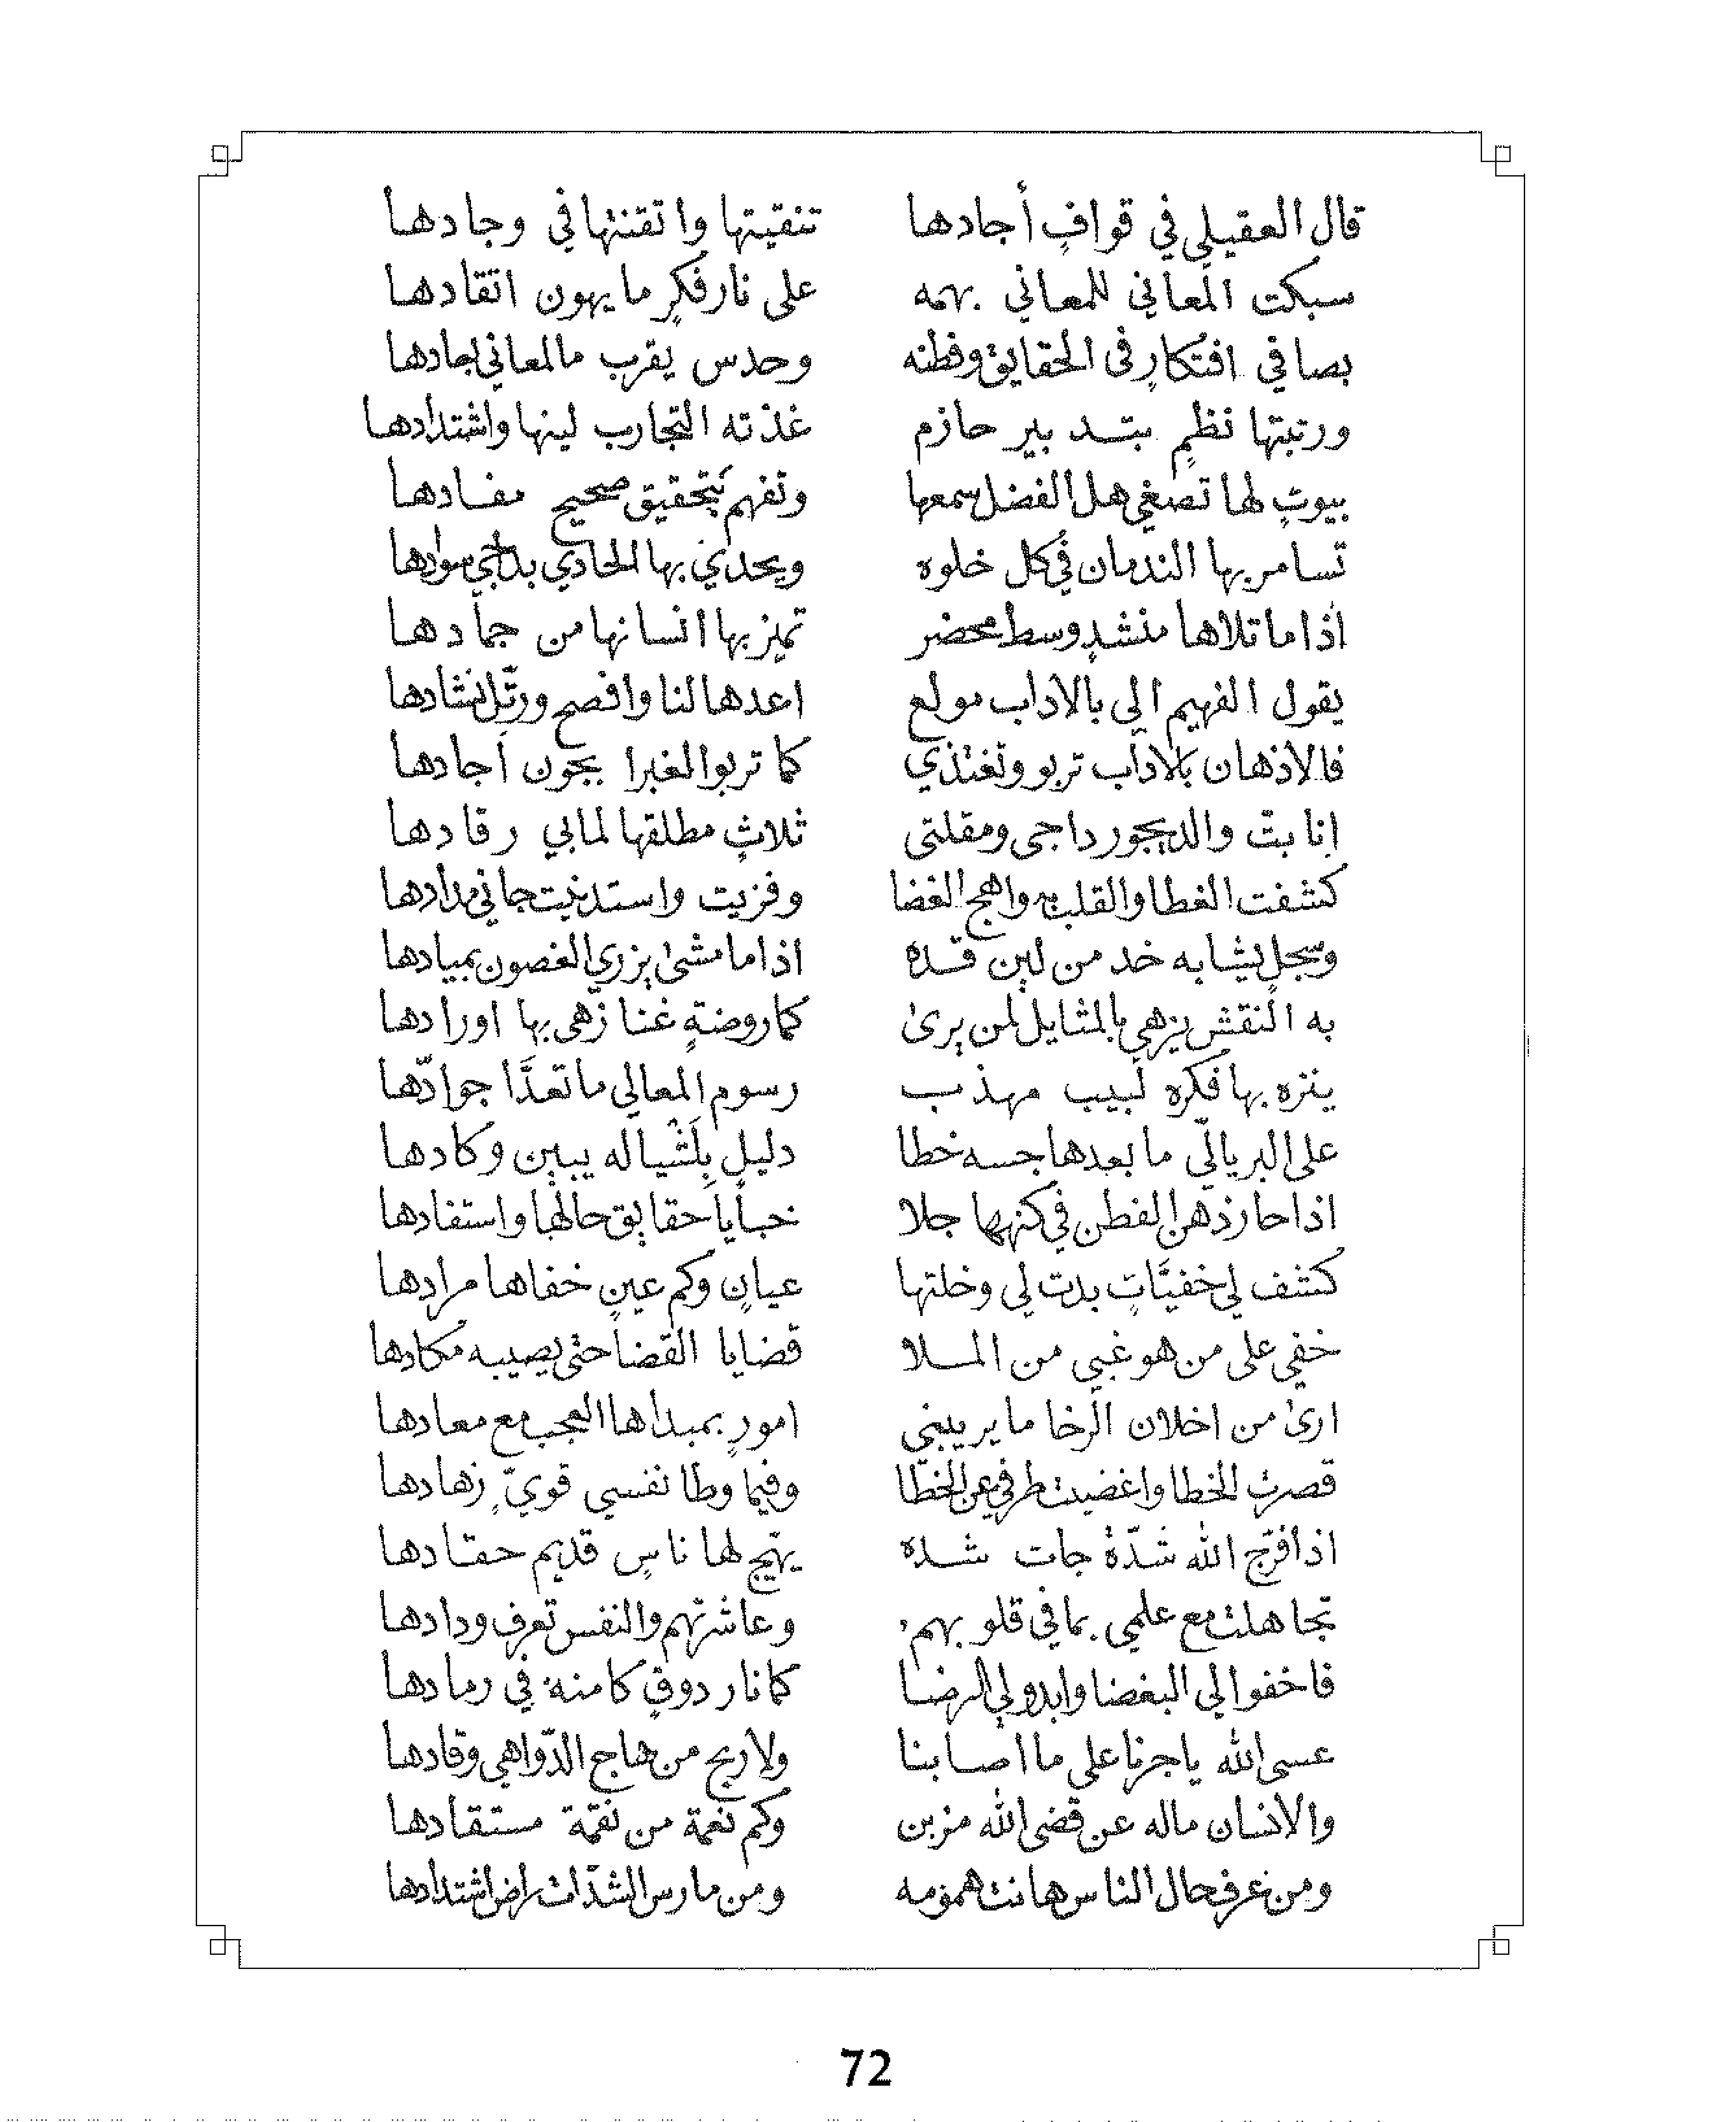 قال العقيلي في قوافٍ أجادها تنقيتها واتقنتها في وجادها
سبكت المعاني للمعاني بهمه على نار فكرٍ ما يهون اتقادها
بصافي افتكارٍ في الحقايق وفطنه وحدس يقرب مالمعاني لجادها
ورتبتها نظمٍ بتدبير حازم غذته التجارب لينها واشتدادها
بيوتٍ لها تصغي هل الفضل سمعها وتفهم بتحقيق صحيح مفادها
تسامر بها الندمان في كل خلوه ويحدي بها الحادي بداجي سوادها
اذا ما تلاها منشدٍ وسط محضر تميز بها انسانها من جمادها
يقول الفهيم الي بالاداب مولع اعدها لنا وافصح ورتّل نشادها
فالاذهان بالاداب تربو وتغتذي كما تربو الغبرا بجون أجادها
انا بتّ والديجور داجي ومقلتي ثلاثٍ مطلقها لمابي رقادها
كشفت الغطا والقلب به واهج الغضا وفزيت واستدنيت جاني مدادها
وسجلٍ يشابه خد من لين قدّه اذا ما مشى يزري الغصون بميادها
به النقش يزهي بالمثايل لمن يرى كما روضةٍ غنا زهى بها اورادها
ينزه بها فكره لبيب مهذب رسوم المعالي ما تعدّا جوادّها
على البر يالّي ما بعدها جسه خطا دليلٍ بلشيا له يبين وكادها
اذا حار ذهن الفطن في كنهها جلا خبايا حقايق حالها واستفادها
كشف لي خفيّاتٍ بدت لي وخلتها عيانٍ وكم عينٍ خفاها مرادها
خفي على من هو غبي من الملا قضايا القضا حتى يصيبه مكادها
ارى من اخلان الرخا ما يريبني امورٍ بمبداها العجب مع معادها
قصرت الخطا واغضيت طرفي عن الخطا وفيما وطا نفسي قويٍّ زهادها
اذا فرّج الله شدّةٍ جات شده يهيّج لها ناسٍ قديم حقادها
تجاهلت مع علمي بما في قلوبهم وعاشرتهم والنفس تعرف ودادها
فاخفوا لي البغضا وابدو لي الرضا كما نار دوقٍ كامنه في رمادها
عسى الله ياجرنا على ما اصابنا ولا ربح من هاج الدّواهي وقادها
والانسان ماله عن قضى الله مزبن وكم نعمة من نقمة مستقادها
ومن عرف حال الناس هانت همومه ومن مارس الشدّات راض اشتدادها
72